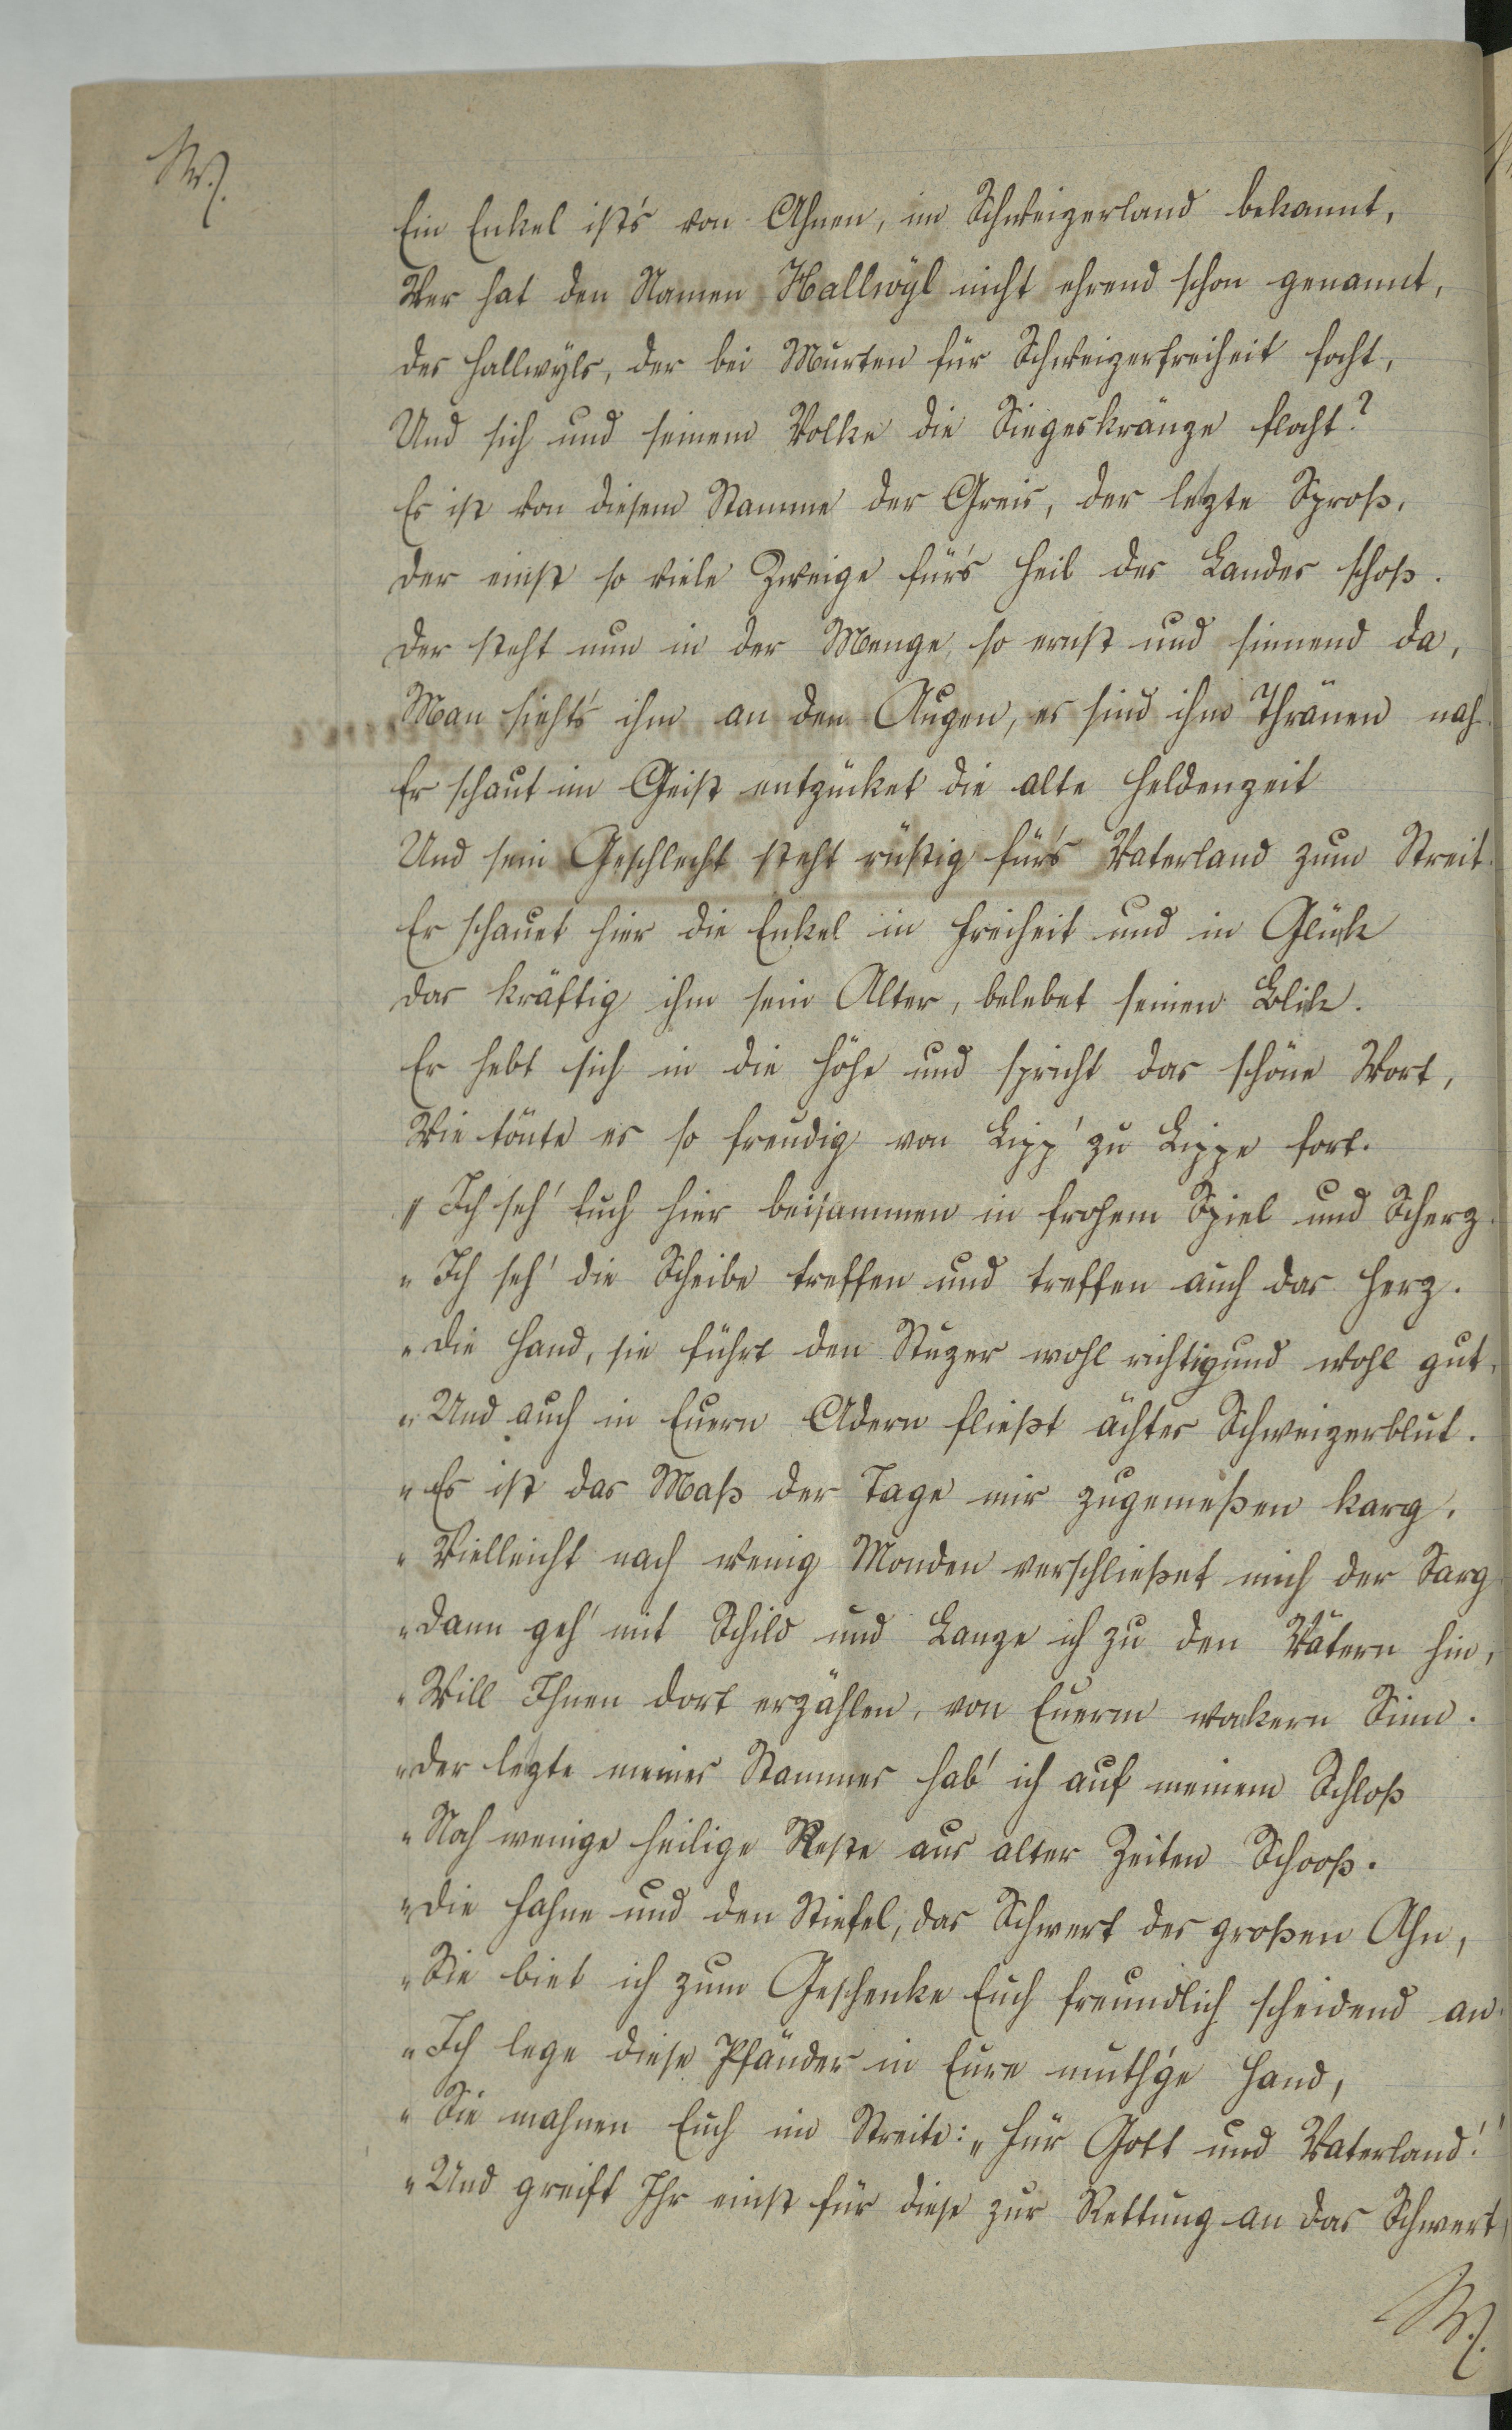 Ein Enkel ist's von Ahnen, im Schweizerland bekannt,
Wer hat den Namen Hallwyl nicht ehrend schon genannt,
Des Hallwyls, der bei Murten für Schweizerfreiheit focht,
Und sich und seinem Volke die Siegeskränze flocht?
Es ist von diesem Stamme der Greis, der letzte Sproß,
Der einst so viele Zweige für's Heil des Landes schoß.
Der steht nun in der Menge, so ernst und sinnend da,
Man sieht's ihm an den Augen, es sind ihm Thränen nah.
Er schaut im Geist entzücket die alte Heldenzeit
Und sein Geschlecht steht rüstig für's Vaterland zum Streit.
Er schauet hier die Enkel in Freiheit und in Glück
Das kräftig ihm sein Alter, belebet seinen Blick.
Er hebt sich in die Höhe und spricht das schöne Wort,
Wie tönte es so freudig von Lipp' zu Lippe fort.
„Ich seh' Euch hier beisammen in frohem Spiel und Scherz.
„Ich seh' die Scheibe treffen und treffen auch das Herz.
„Die Hand, sie führt den Stuzer wohl richtig und wohl gut,
„Und auch in Euern Adern fließt ächtes Schweizerblut.
„Es ist das Maß der Tage mir zugemeßen karg,
„Vielleicht nach wenig Monden verschließet mich der Sarg
„Dann geh' mit Schild und Lanze ich zu den Vätern hin,
„Will Ihnen dort erzählen, von Euerm wakern Sinn.
„Der letzte meines Stammes hab' ich auf meinem Schloß
„Noch wenige heilige Reste aus alter Zeiten Schooß.
„Die Fahne und den Stiefel, das Schwert des großen Ahn,
„Sie biet ich zum Geschenke Euch freundlich scheidend an.
„Ich lege diese Pfänder in Eure muth'ge Hand,
„Sie mahnen Euch im Streite: „Für Gott und Vaterland!"
„Und greift Ihr einst für diese zur Rettung an das Schwert,